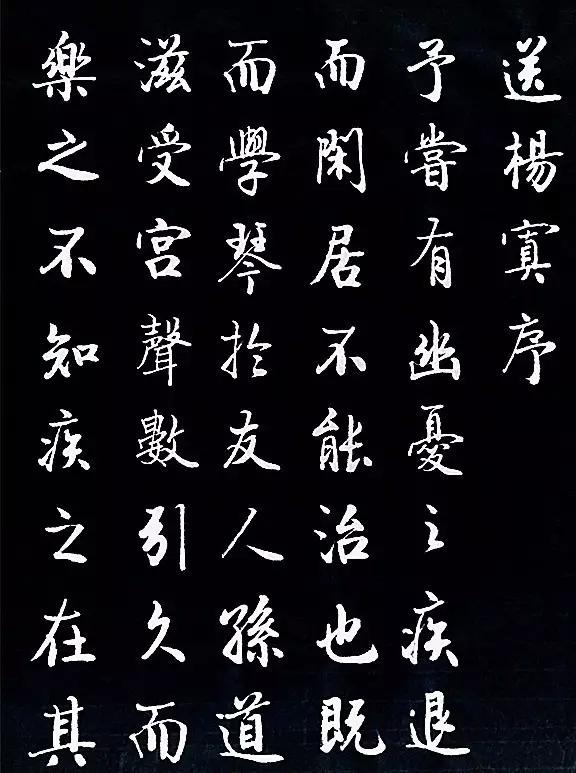 送楊寘序
予嘗有幽憂之疾退
而閑居不能治也既
而學琴於友人孫道
滋受宮聲數引久而
樂之不知疾之在其